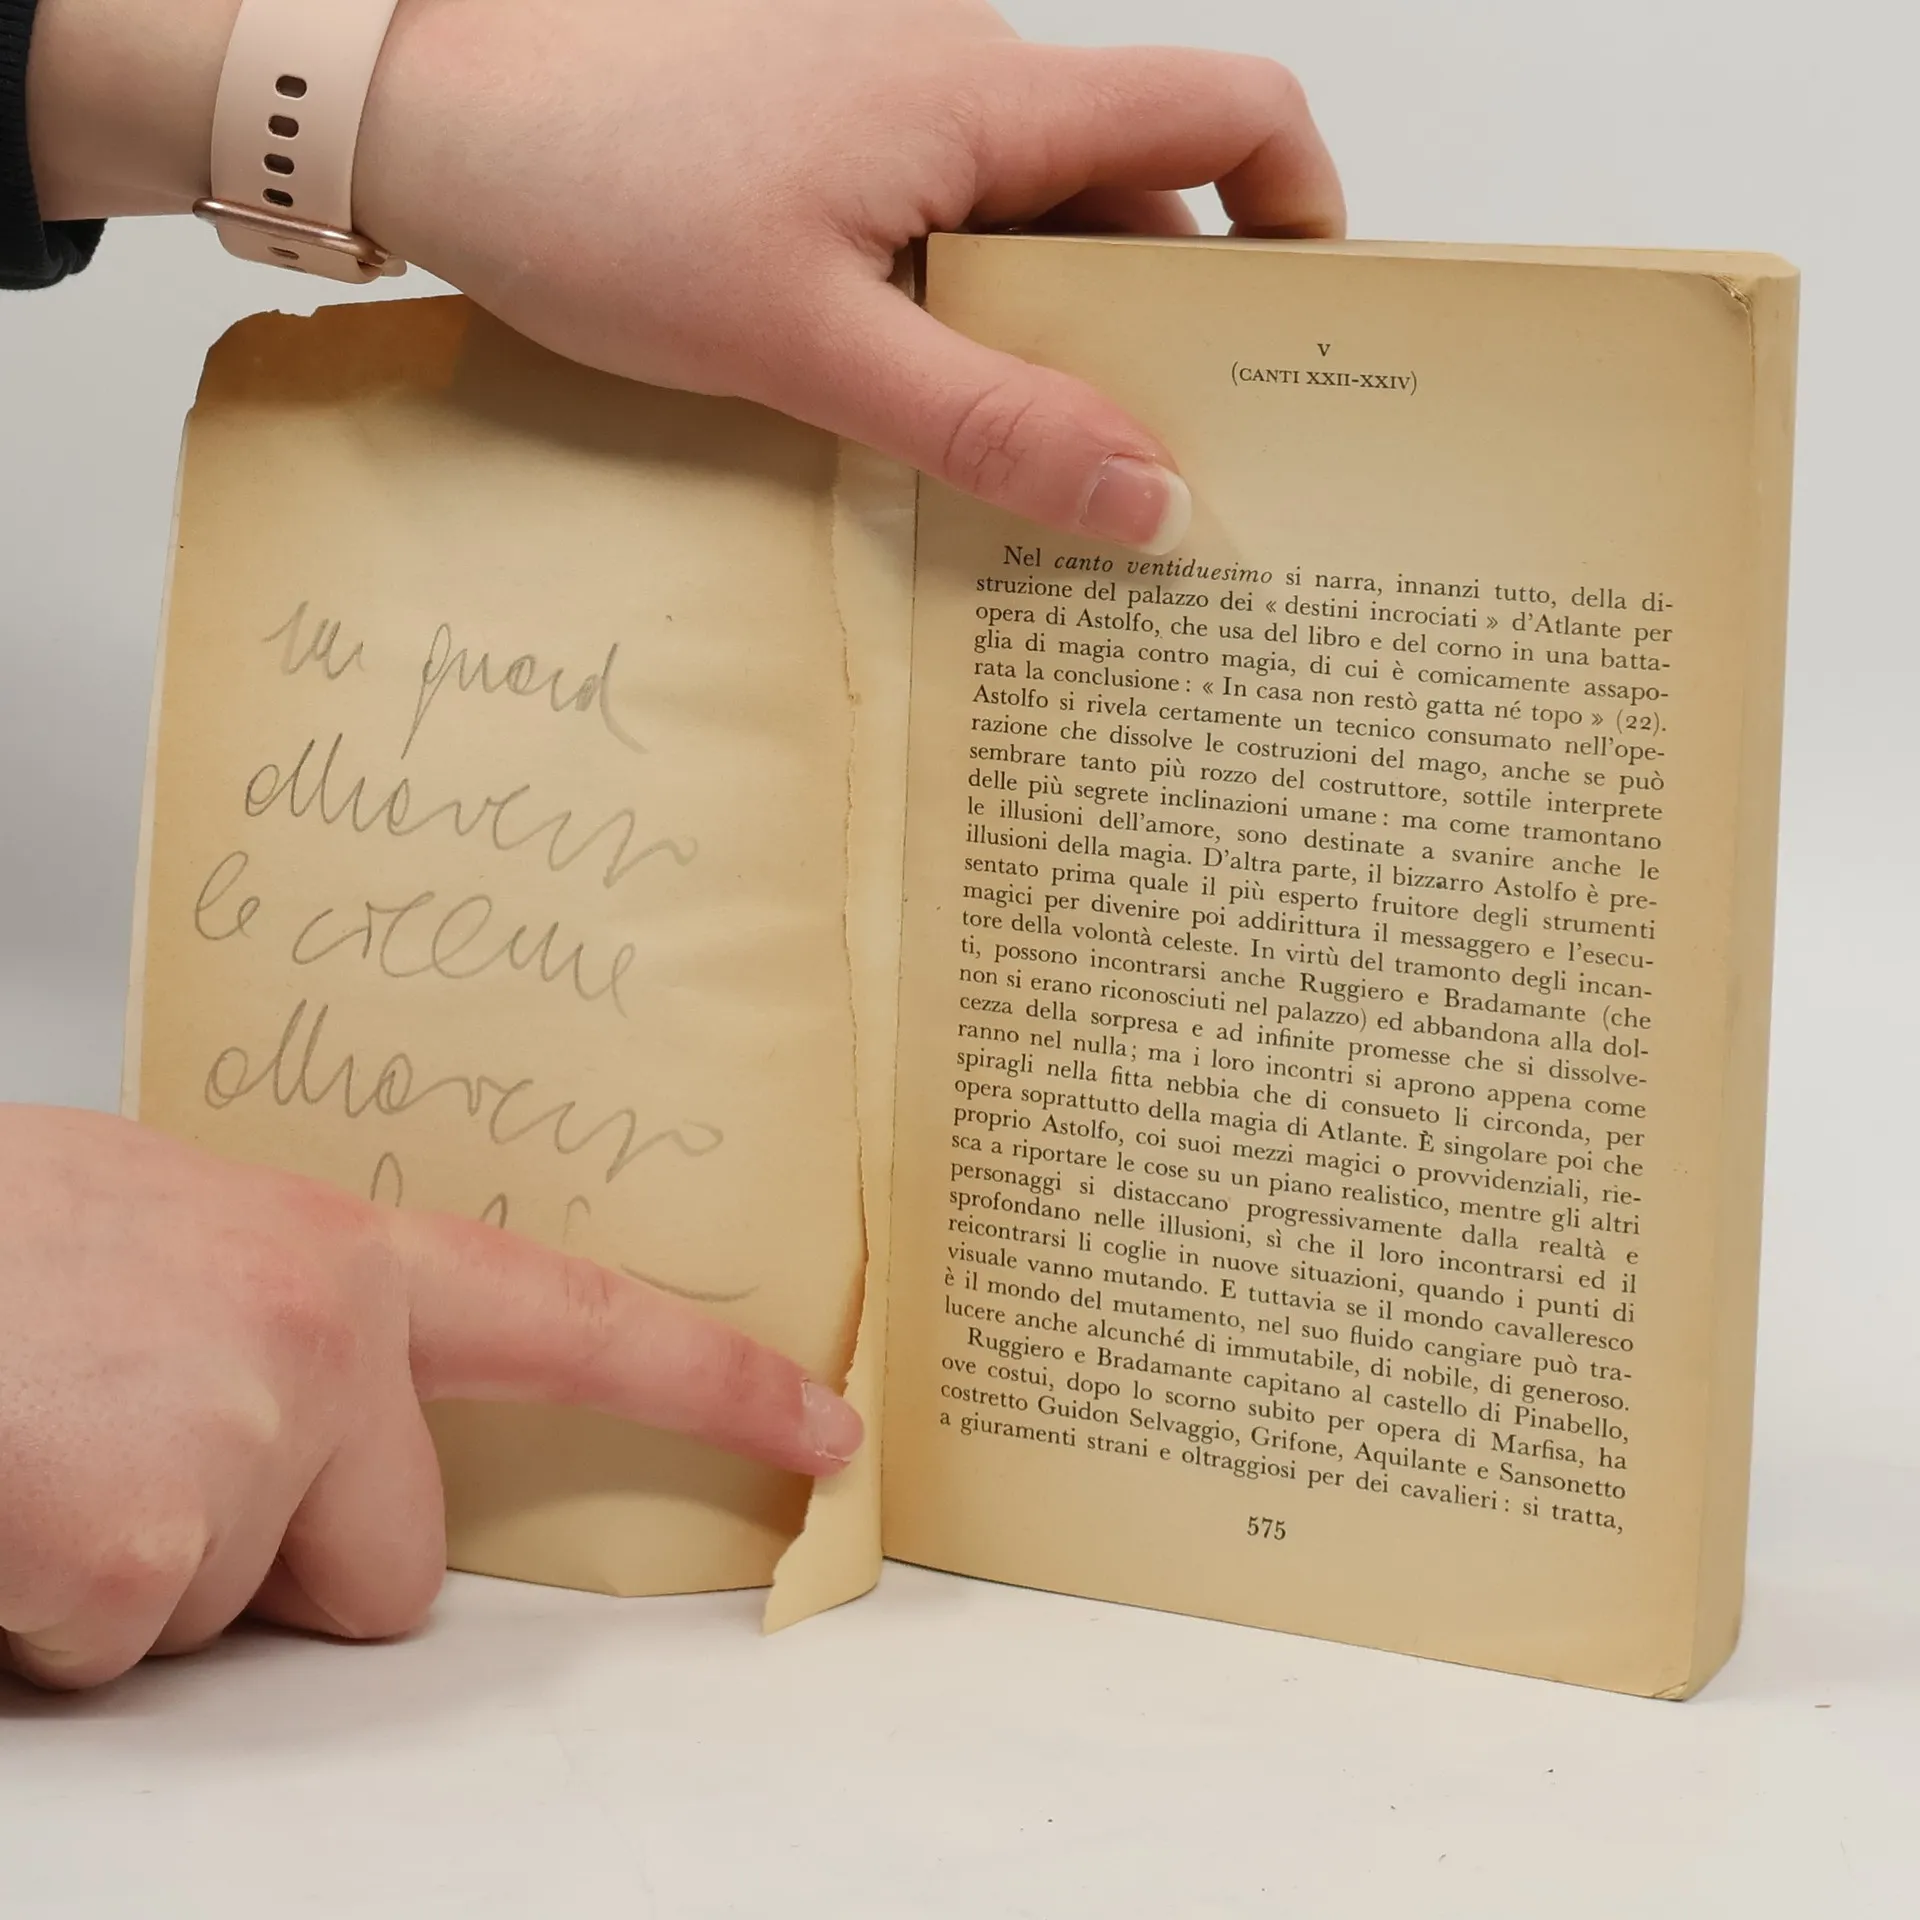 attraverso
le
attraverso
V
(CANTI XXII-XXIV)
Nel canto ventiduesimo si narra, innanzi tutto, della di-
struzione del palazzo dei « destini incrociati » d'Atlante per
opera di Astolfo, che usa del libro e del corno in una batta-
glia di magia contro magia, di cui è comicamente assapo-
rata la conclusione : « In casa non restò gatta né topo » (22).
Astolfo si rivela certamente un tecnico consumato nell'ope-
razione che dissolve le costruzioni del mago, anche se può
sembrare tanto più rozzo del costruttore, sottile interprete
delle più segrete inclinazioni umane : ma come tramontano
le illusioni dell'amore, sono destinate a svanire anche le
illusioni della magia. D'altra parte, il bizzarro Astolfo è pre-
sentato prima quale il più esperto fruitore degli strumenti
magici per divenire poi addirittura il messaggero e l'esecu-
tore della volontà celeste. In virtù del tramonto degli incan-
ti, possono incontrarsi anche Ruggiero e Bradamante (che
non si erano riconosciuti nel palazzo) ed abbandona alla dol-
cezza della sorpresa e ad infinite promesse che si dissolve-
ranno nel nulla; ma i loro incontri si aprono appena come
spiragli nella fitta nebbia che di consueto li circonda, per
opera soprattutto della magia di Atlante. È singolare poi che
proprio Astolfo, coi suoi mezzi magici o provvidenziali, rie-
sca a riportare le cose su un piano realistico, mentre gli altri
personaggi si distaccano progressivamente dalla realtà e
sprofondano nelle illusioni, sì che il loro incontrarsi ed il
reicontrarsi li coglie in nuove situazioni, quando i punti di
visuale vanno mutando. E tuttavia se il mondo cavalleresco
è il mondo del mutamento, nel suo fluido cangiare può tra-
lucere anche alcunché di immutabile, di nobile, di generoso.
Ruggiero e Bradamante capitano al castello di Pinabello,
ove costui, dopo lo scorno subito per opera di Marfisa, ha
costretto Guidon Selvaggio, Grifone, Aquilante e Sansonetto
a giuramenti strani e oltraggiosi per dei cavalieri : si tratta,
575